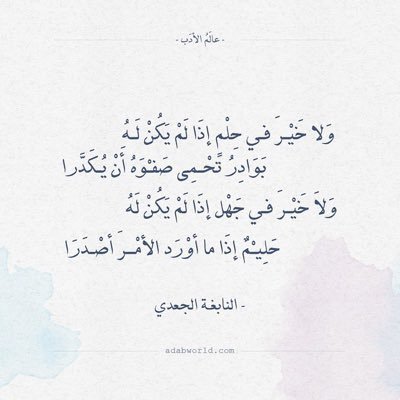 - عالَمُ الأدَب -
وَلا خَيْرَ في حِلْمٍ إذَا لَمْ يَكُنْ لَـهُ
بَوَادِرُ تَحْـمِى صَفْـوَهُ أَنْ يُـكَدَّرا
وَلاَ خَيْـرَ فـي جَهْل إذَا لَمْ يَكُنْ لَهُ
حَلِيْـمٌ إذَا ما أوْرَد الأمْـرَ أصْـدَرَا
- النابغة الجعدي
adabworld.com